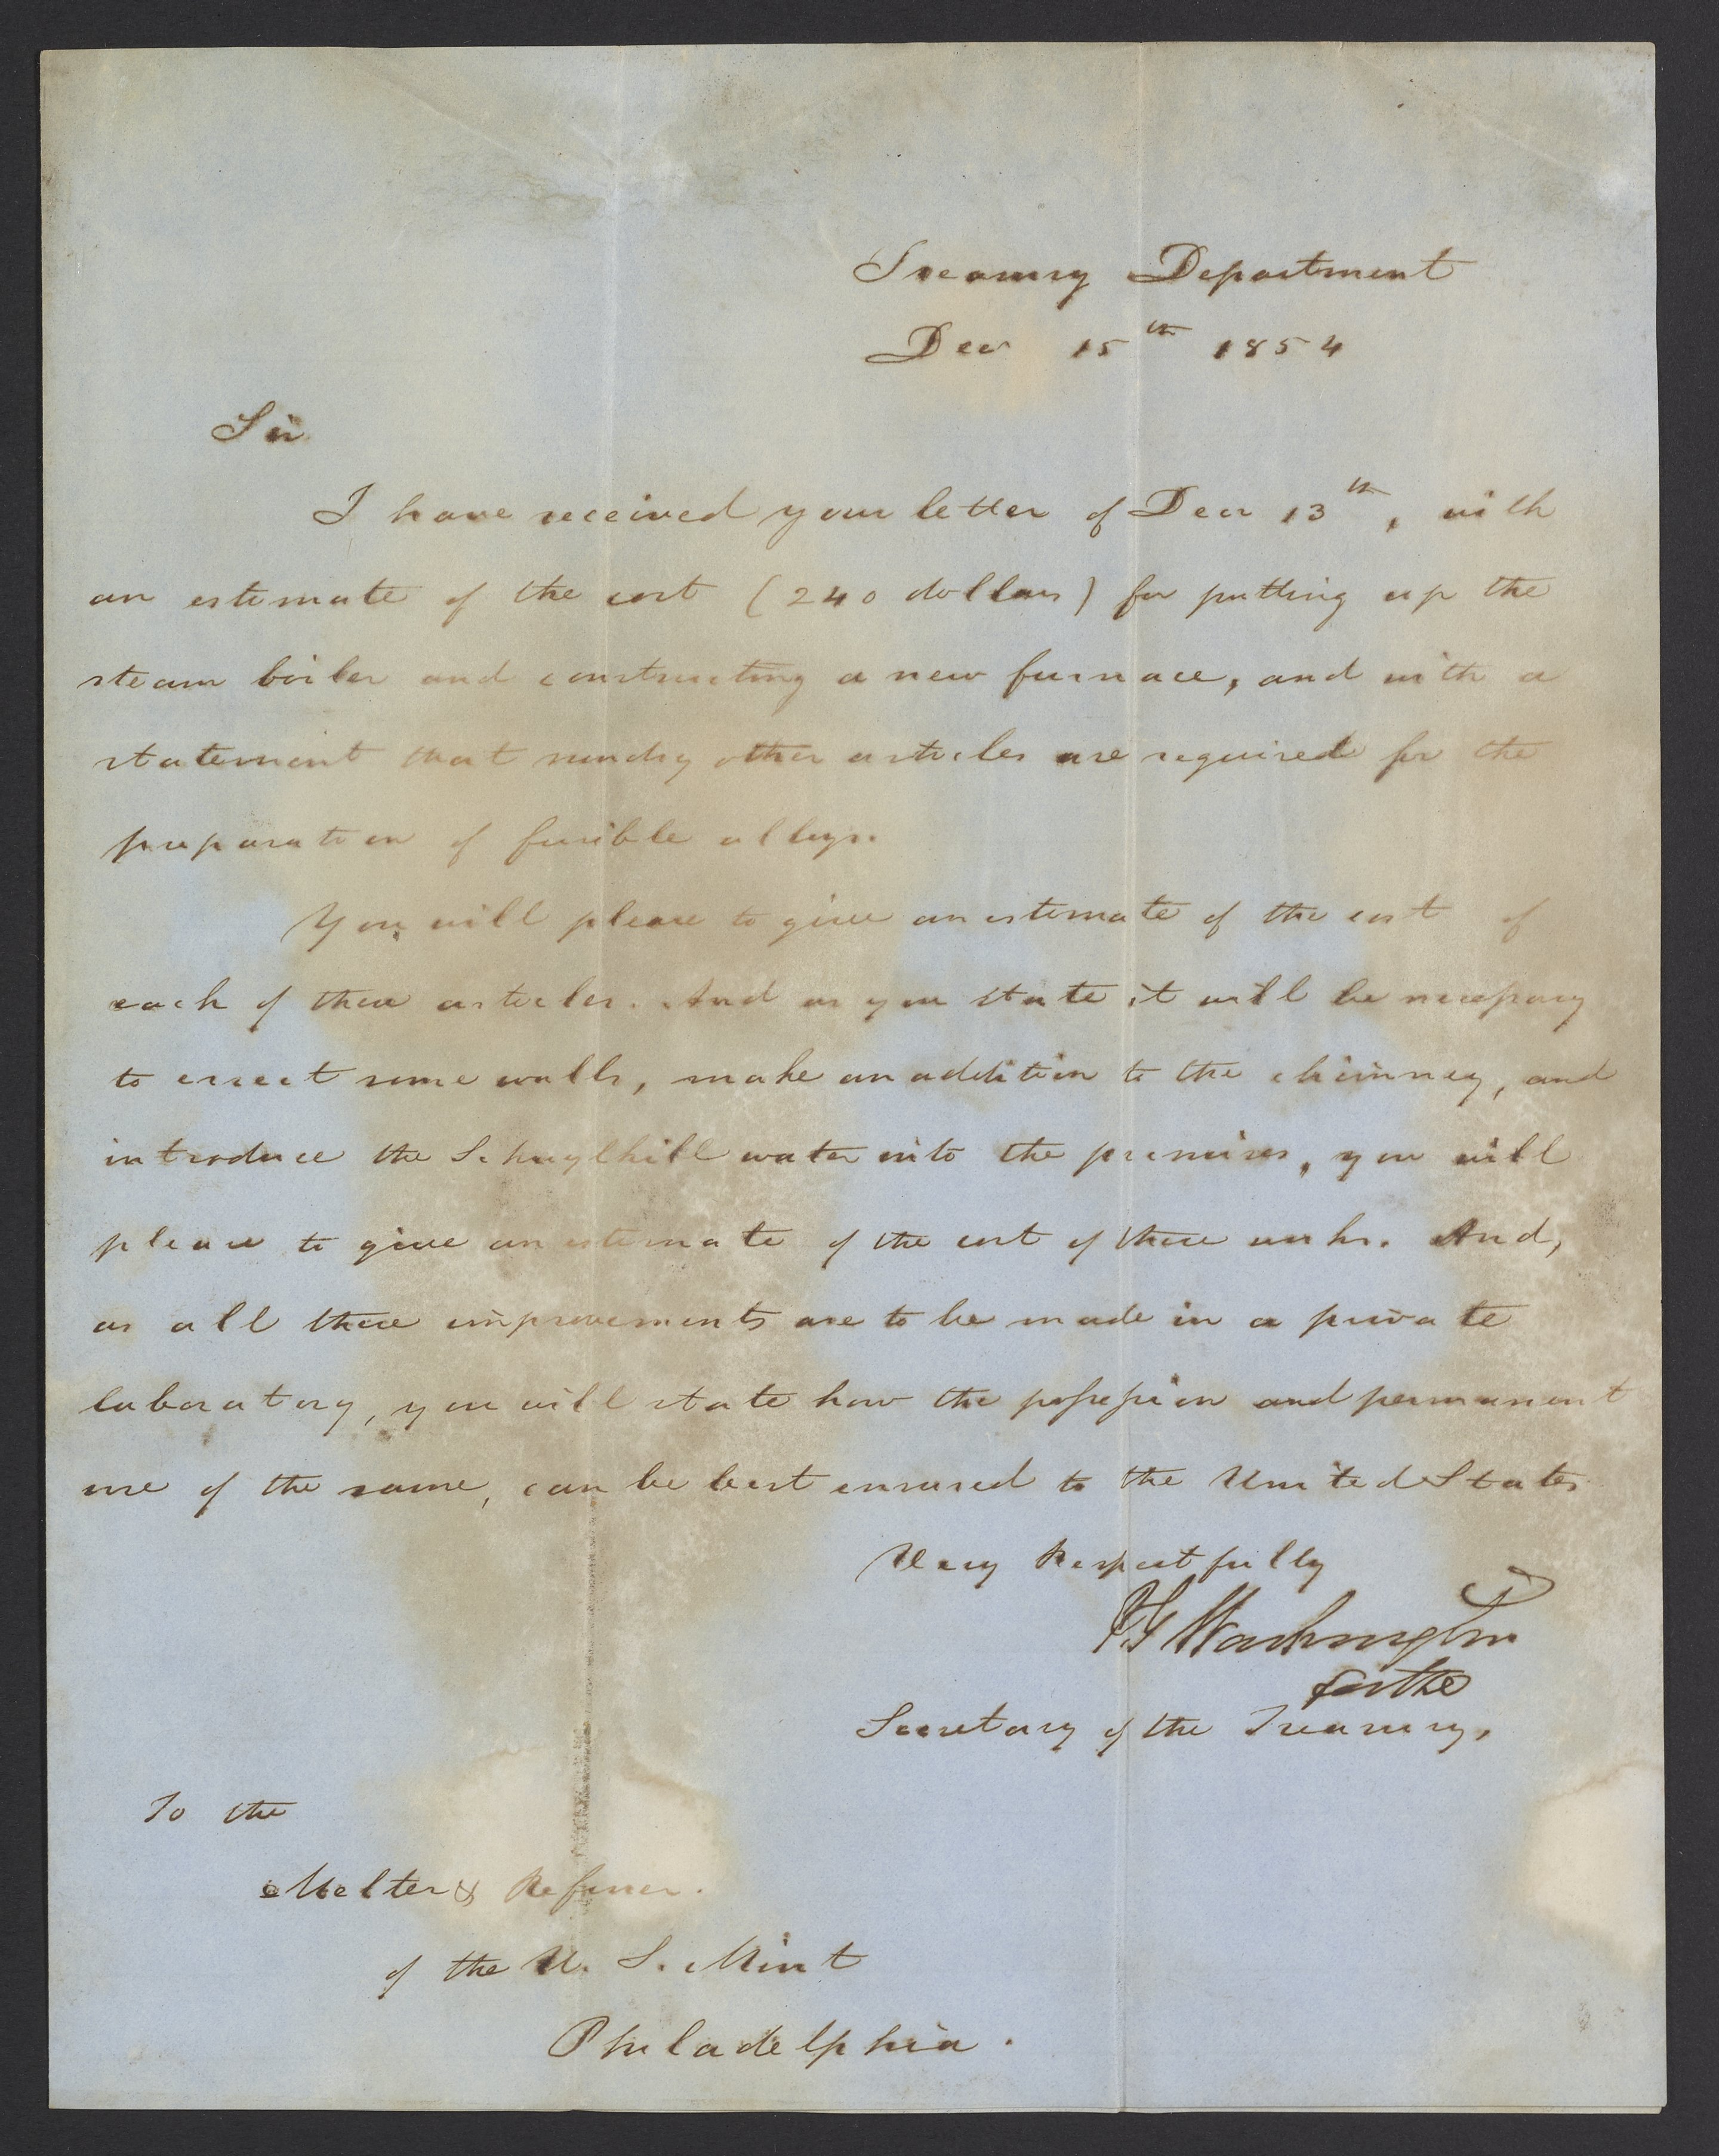 Treasury Department
Decr 15th 1854
Sir
I have received your letter of Decr 13th, with
an estimate of the cost (240 dollars) for putting up the
steam boiler and constructing a new furnace, and with a
statement that sundry other articles are required for the
preparation of fusible alloys.
You will please to give an estimate of the cost of
each of these articles. And as you state it will be necessary
to errect some walls, make an addition to the chimney, and
introduce the Schuylkill water into the premises, you will
please to give an estimate of the cost of these works. And,
as all these improvements are to be made in a private
laboratory, you will state how the possession and permanent
use of the same, can be best ensured to the United States
Very Respectfully
P G Washington
for the
Secretary of the Treasury,
To the
Melter & Refiner.
of the U. S. Mint
Philadelphia.